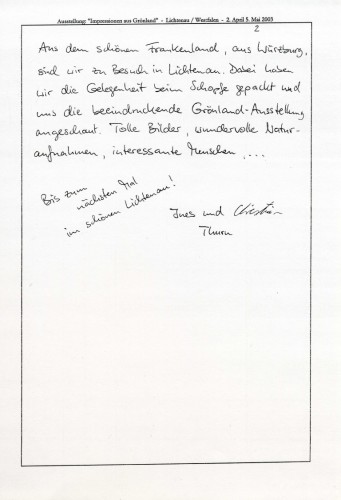 Ausstellung: "Impressionen aus Grönland" - Lichtenau / Westfalen - 2. April 5. Mai 2003
2
Aus dem schönen Frankenland, aus Würzburg,
sind wir zu Besuch in Lichtenau. Dabei haben
wir die Gelegenheit beim Schopfe gepackt und
uns die beeindruckende Grönland-Ausstellung
angeschaut. Tolle Bilder, wundervolle Natur-
aufnahmen, interessante Menschen, ...
Bis zum
nächsten Mal
im schönen Lichtenau!
Ines und Christian
Thurn